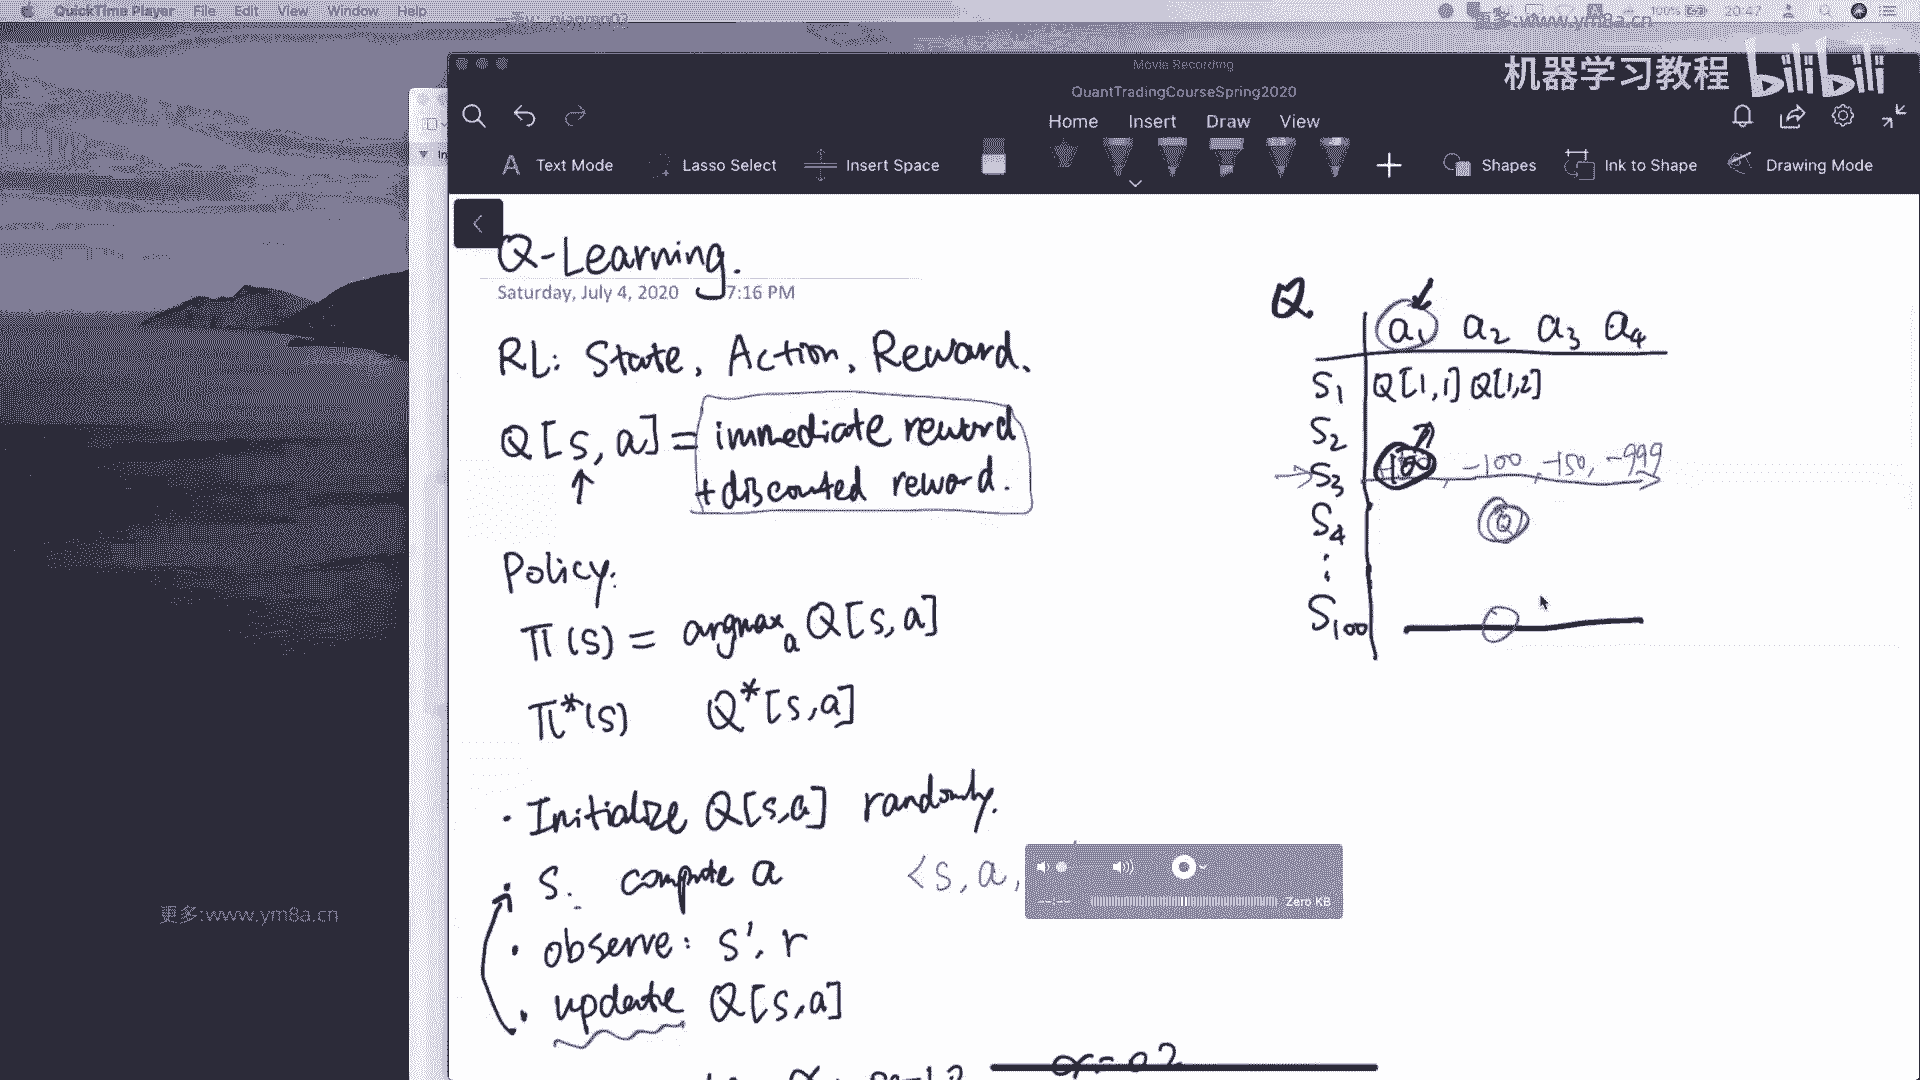 QuickTime Player File Edit View Window Help
100% 20:47
更多:www.ym8a.cn
Movie Recording
机器学习教程 bilibili
QuantTradingCourseSpring2020
Home Insert Draw View
Text Mode Lasso Select Insert Space Shapes Ink to Shape Drawing Mode
Q-Learning.
Saturday, July 4, 2020 7:16 PM
RL: State, Action, Reward.
Q[s,a] = immediate reward
+discounted reward.
Policy:
π(s) = argmax a Q[s,a]
π*(s) Q*[s,a]
· Initialize Q[s,a] randomly.
· s. compute a <s, a,
· observe: s', r
· update Q[s,a]
Q
a1 a2 a3 a4
S1 Q[1,1] Q[1,2]
S2
S3 -100, -100, -150, -999
S4 Q
⋮
S100
Zero KB
更多:www.ym8a.cn